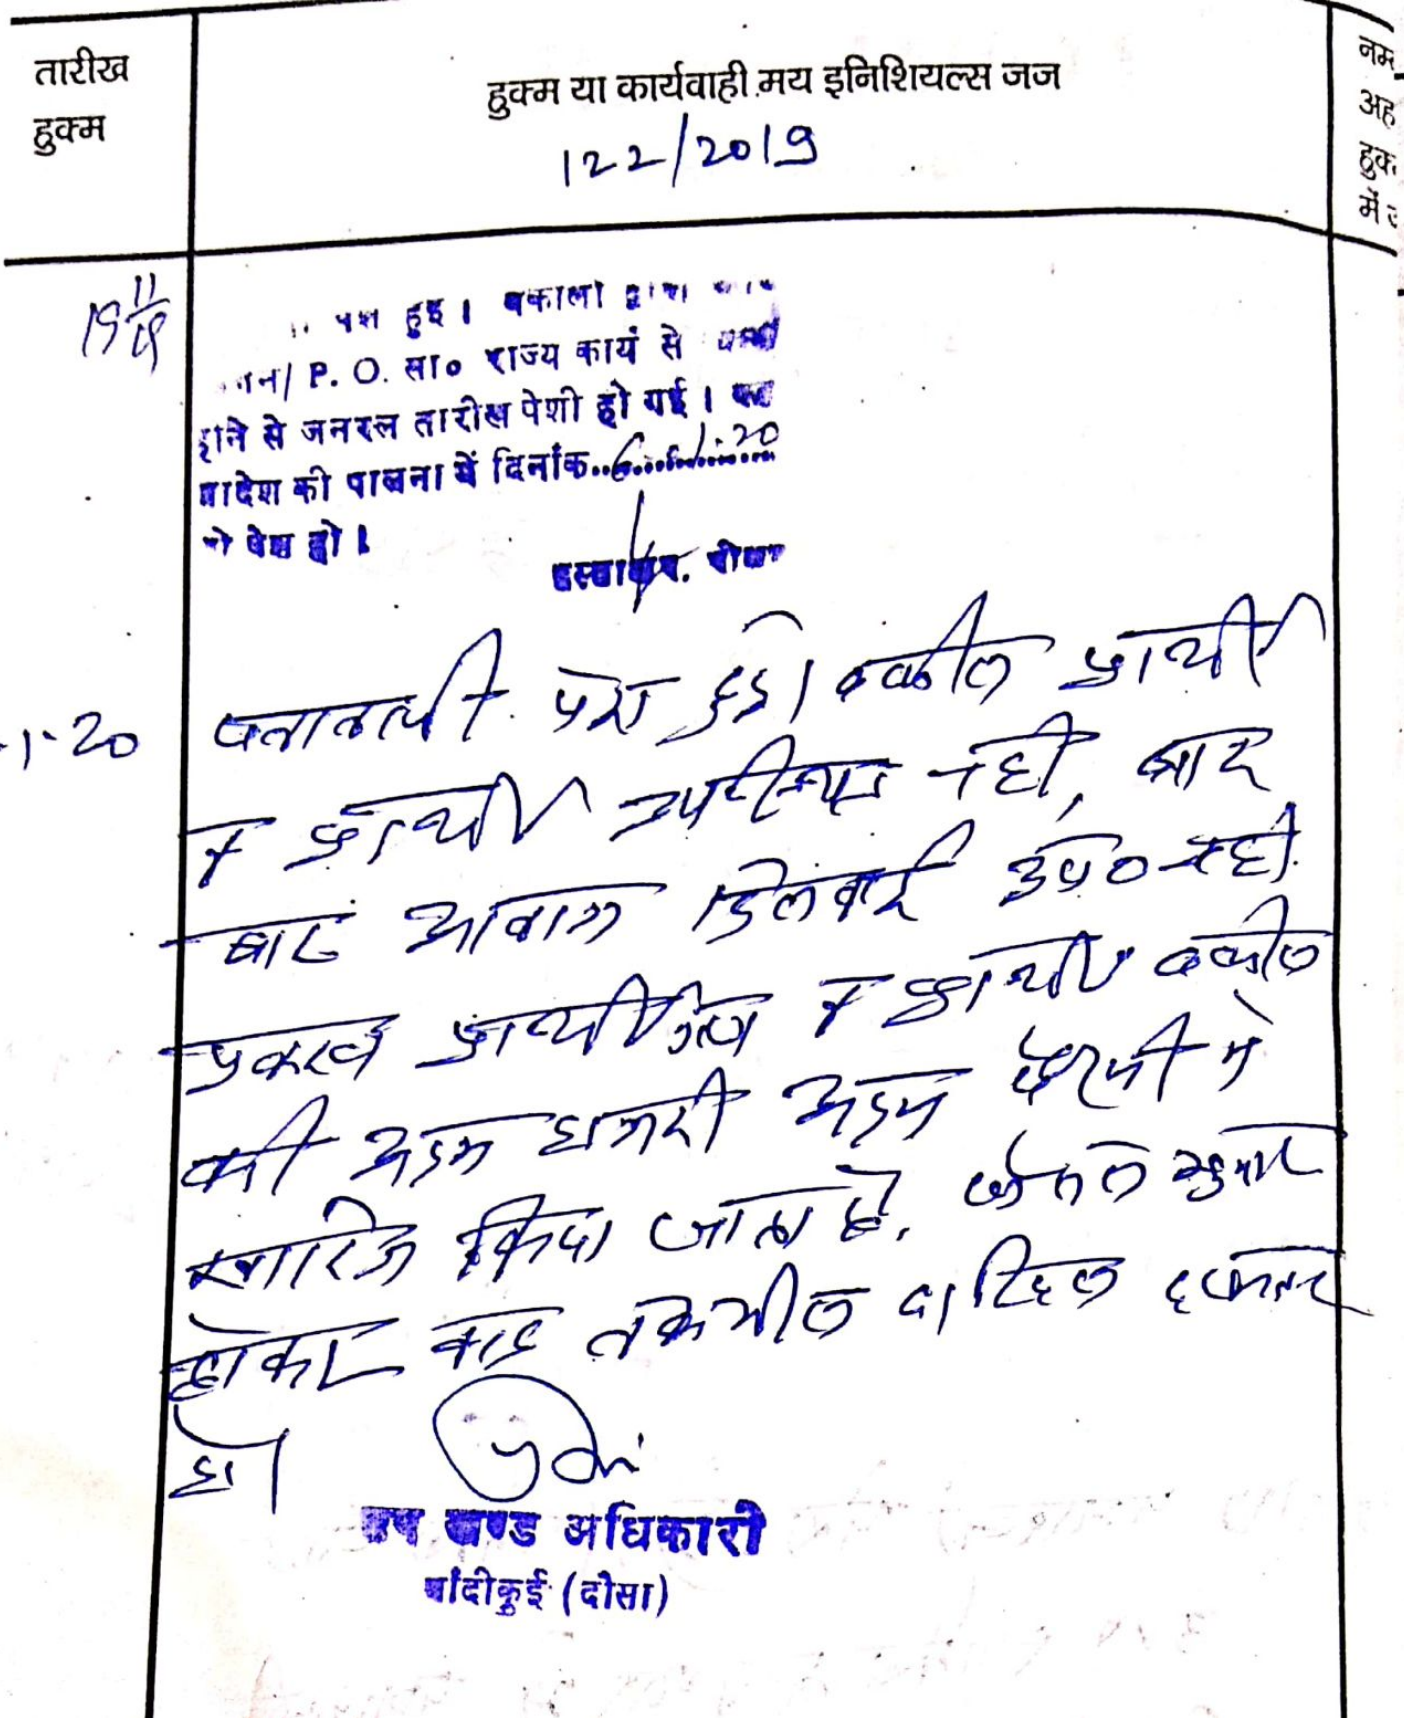 तारीख
हुक्म
हुक्म या कार्यवाही मय इनिशियल्स जज
122/2019
नम
अह
हुक
में
19 11/19
पेश हुई। वकीलों द्वारा
P. O. सा० राज्य कार्य से
होने से जनरल तारीख पेशी हो गई।
आदेश की पालना में दिनांक..6.1.20
को पेश हो।
हस्ताक्षर. रीडर
1-20
पत्रावली पेश हुई। वकील प्रार्थी
व प्रार्थी उपस्थित नहीं, बार
बार आवाज दिलवाई उप० नहीं
प्रकरण प्रार्थी व प्रार्थी वकील
की अदम हाजरी अदम पैरवी मे
खारिज किया जाता है. फैसल शुमार
होकर बाद तकमील दाखिल दफ्तर
हो।
उप खण्ड अधिकारी
बांदीकुई (दौसा)